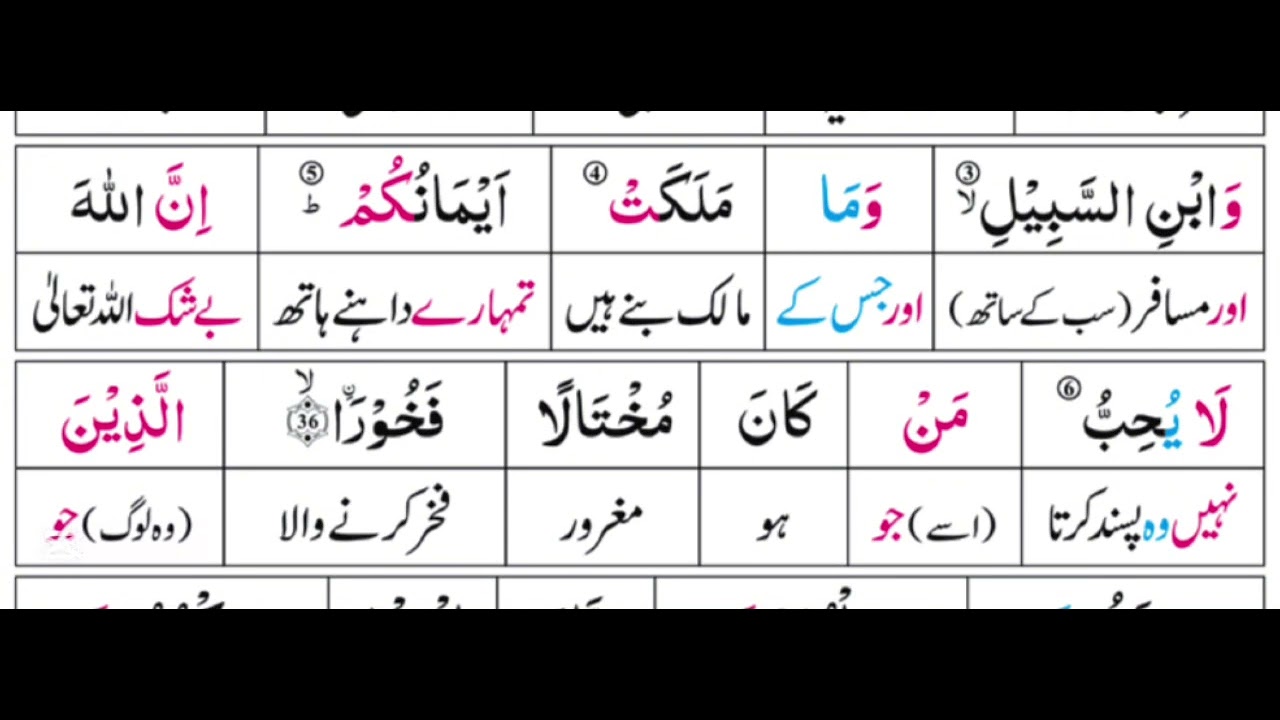 وَابْنِ السَّبِيْلِ ③ۙ وَمَا مَلَكَتْ ④ اَيْمَانُكُمْ ⑤ؕ اِنَّ اللّٰهَ
اور مسافر (سب کے ساتھ) اور جس کے مالک بنے ہیں تمہارے داہنے ہاتھ بے شک اللہ تعالیٰ
لَا يُحِبُّ ⑥ مَنْ كَانَ مُخْتَالًا فَخُوْرَاۨ ۙ 36 الَّذِيْنَ
نہیں وہ پسند کرتا (اسے) جو ہو مغرور فخر کرنے والا (وہ لوگ) جو